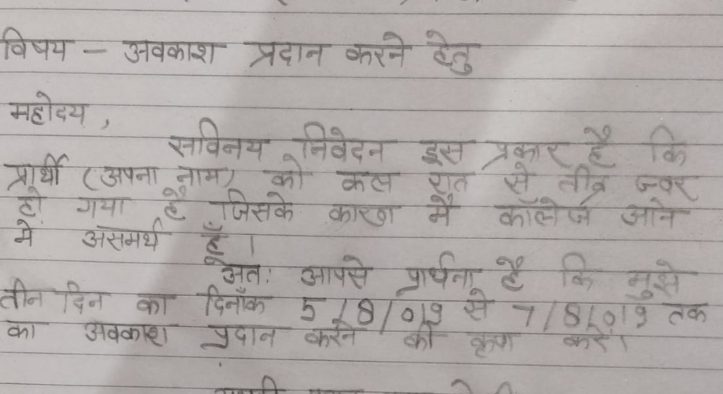 विषय - अवकाश प्रदान करने हेतु
महोदय,
सविनय निवेदन इस प्रकार है कि
प्रार्थी (अपना नाम) को कल रात से तीव्र ज्वर
हो गया है जिसके कारण मैं कॉलेज आने
में असमर्थ हूँ।
अतः आपसे प्रार्थना है कि मुझे
तीन दिन का दिनाँक 5/8/019 से 7/8/019 तक
का अवकाश प्रदान करने की कृपा करें।